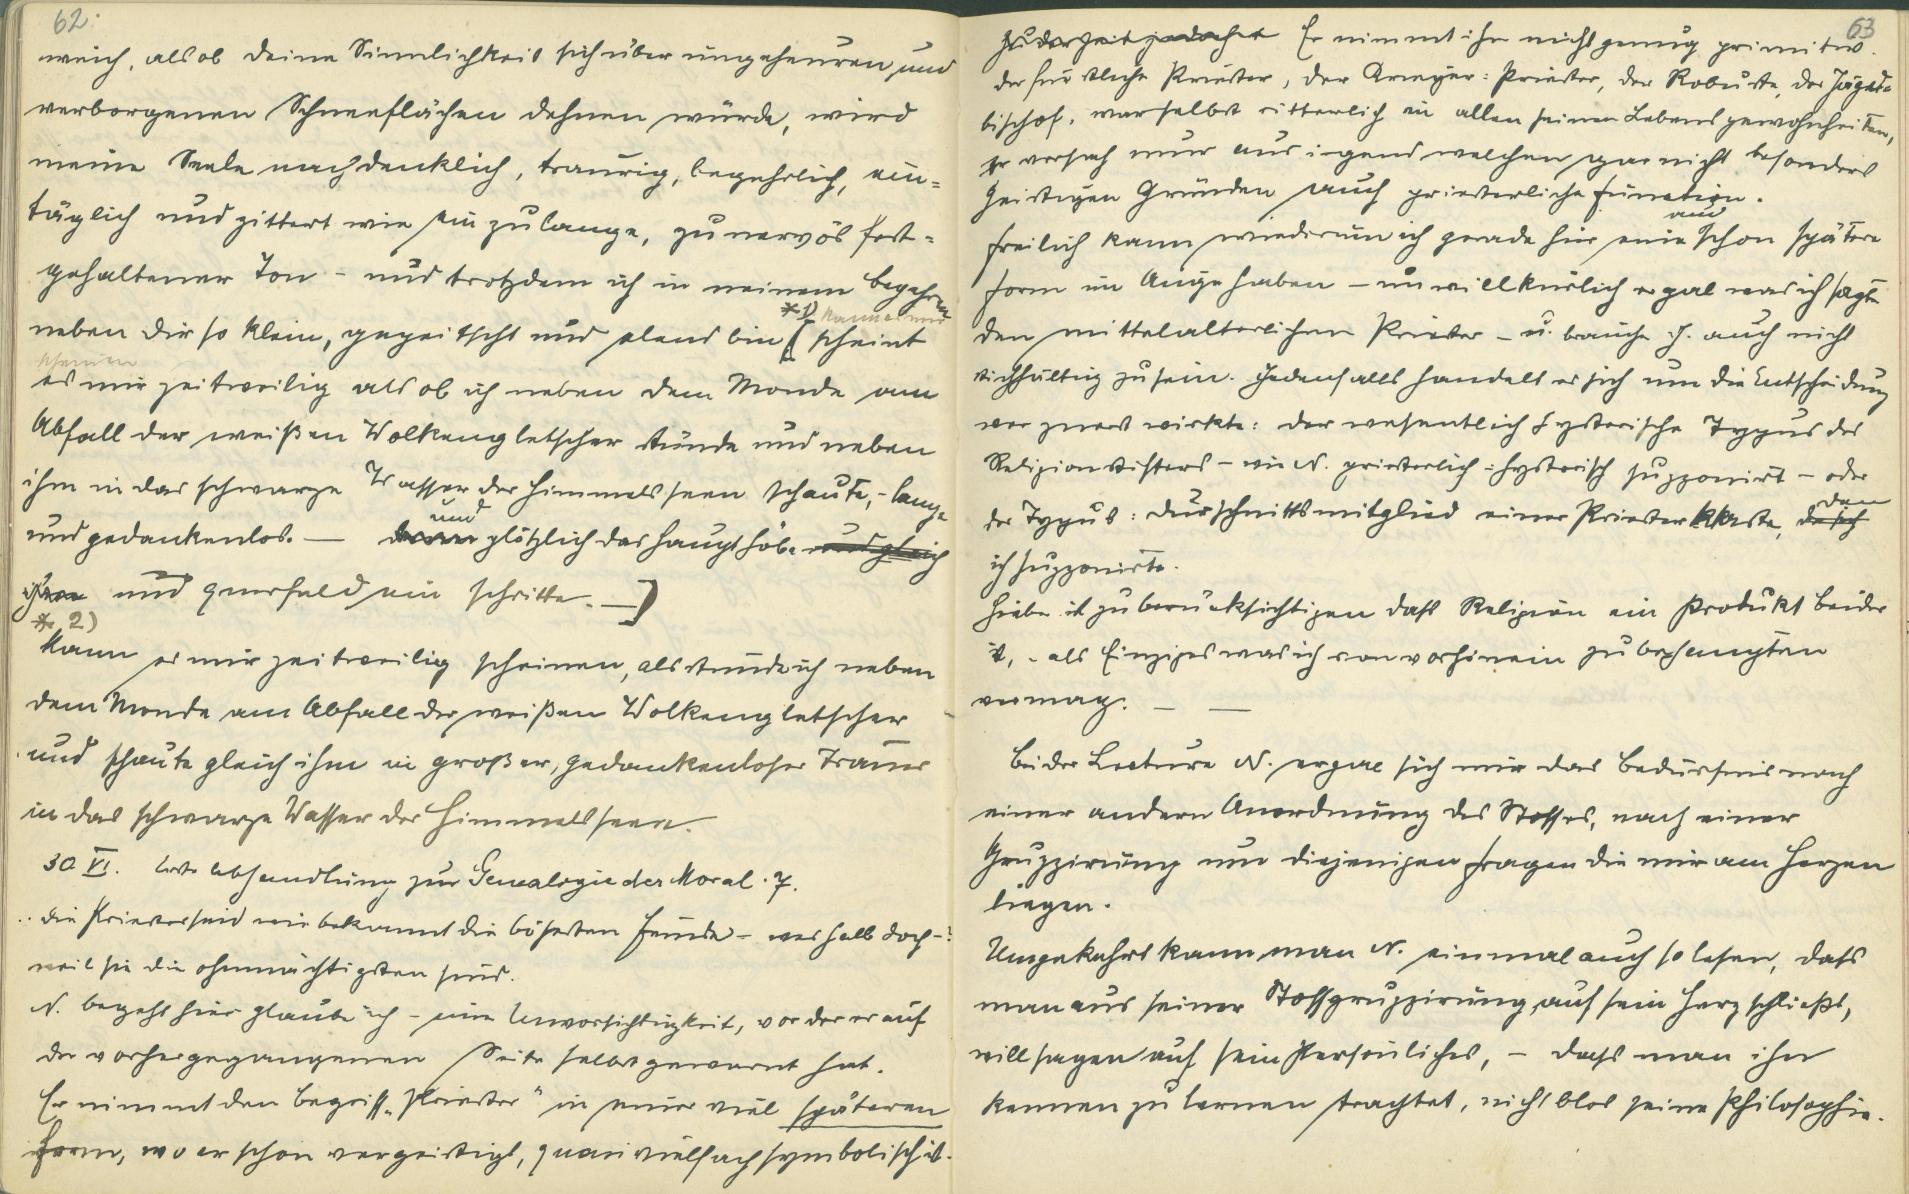 62.
weich, als ob deine Sinnlichkeit sich über ungeheuren und
verborgenen Schneeflächen dehnen würde, wird
meine Seele nachdenklich, traurig, begehrlich, ein=
täglich und zittert wie ein zu lange, zu nervös fest=
gehaltener Ton – und trotzdem ich in meinem begehren
*1) kann es mir
neben dir so klein, gepeitscht und elend bin [ scheint
scheinen
es mir zeitweilig als ob ich neben dem Monde am
Abfall der weißen Wolkengletscher stünde und neben
ihm in das schwarze Wasser der Himmelsseen schaute, – lange
und
und gedankenlos. — dann plötzlich das Haupt höbe und gleich
ihm und querfeldein schritte. —]
* 2)
kann es mir zeitweilig scheinen, als stünde ich neben
dem Monde am Abfall der weißen Wolkengletscher
und schaute gleich ihm in großer, gedankenloser Trauer
in das schwarze Wasser der Himmelsseen.
30 VI. Erste Abhandlung zur Genealogie der Moral. 7.
.. die Priester sind wie bekannt die bösesten Feinde – weshalb doch –?
weil sie die ohnmächtigsten sind.
N. begeht hier glaube ich – eine Unvorsichtigkeit, vor der er auf
der vorhergegangenen Seite selbst gewarnt hat.
Er nimmt den Begriff „Priester" in einer viel späteren
Form, wo er schon vergeistigt, quasi vielfach symbolisch ist.
63
Er nimmt ihn nicht genug primitiv.
der fürstliche Priester, der Krieger=Priester, der Robuste, der Jagd=
bischof, war selbst ritterlich in allen seinen Lebensgewohnheiten,
er versah nur aus irgend welchen gar nicht besonders
geistigen Gründen auch priesterliche Function.
Freilich kann wiederum ich gerade hier eine schon spätere
Form im Auge haben – unwillkürlich ergab was ich sagte
den mittelalterlichen Priester – u. brauche auch nicht
stichhältig zu sein. Jedenfalls handelt es sich um die Entscheidung
wer zuerst wirkte: der wesentlich hysterische Typus des
Religionsstifters – wie N. priesterlich=hysterisch supponirt – oder
den
der Typus: Durschnittsmitglied einer Priesterkaste,
ich supponirte.
Hiebei ist zu berücksichtigen daß Religion ein Produkt beider
ist, – als Einziges was ich von vorhinein zu behaupten
vermag. — —
Bei der Lecture N. ergab sich mir das Bedürfnis nach
einer andern Anordnung des Stoffes, nach einer
Gruppirung um diejenigen Fragen die mir am Herzen
liegen.
Umgekehrt kann man N. einmal auch so lesen, dass
man aus seiner Stoffgruppirung auf sein Herz schließt,
will sagen auf sein Persönliches, – dass man ihn
kennen zu lernen trachtet, nicht blos seine Philosophie.